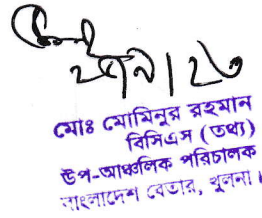 মোঃ মোমিনুর রহমান
বিসিএস (তথ্য)
উপ-আঞ্চলিক পরিচালক
বাংলাদেশ বেতার, খুলনা।